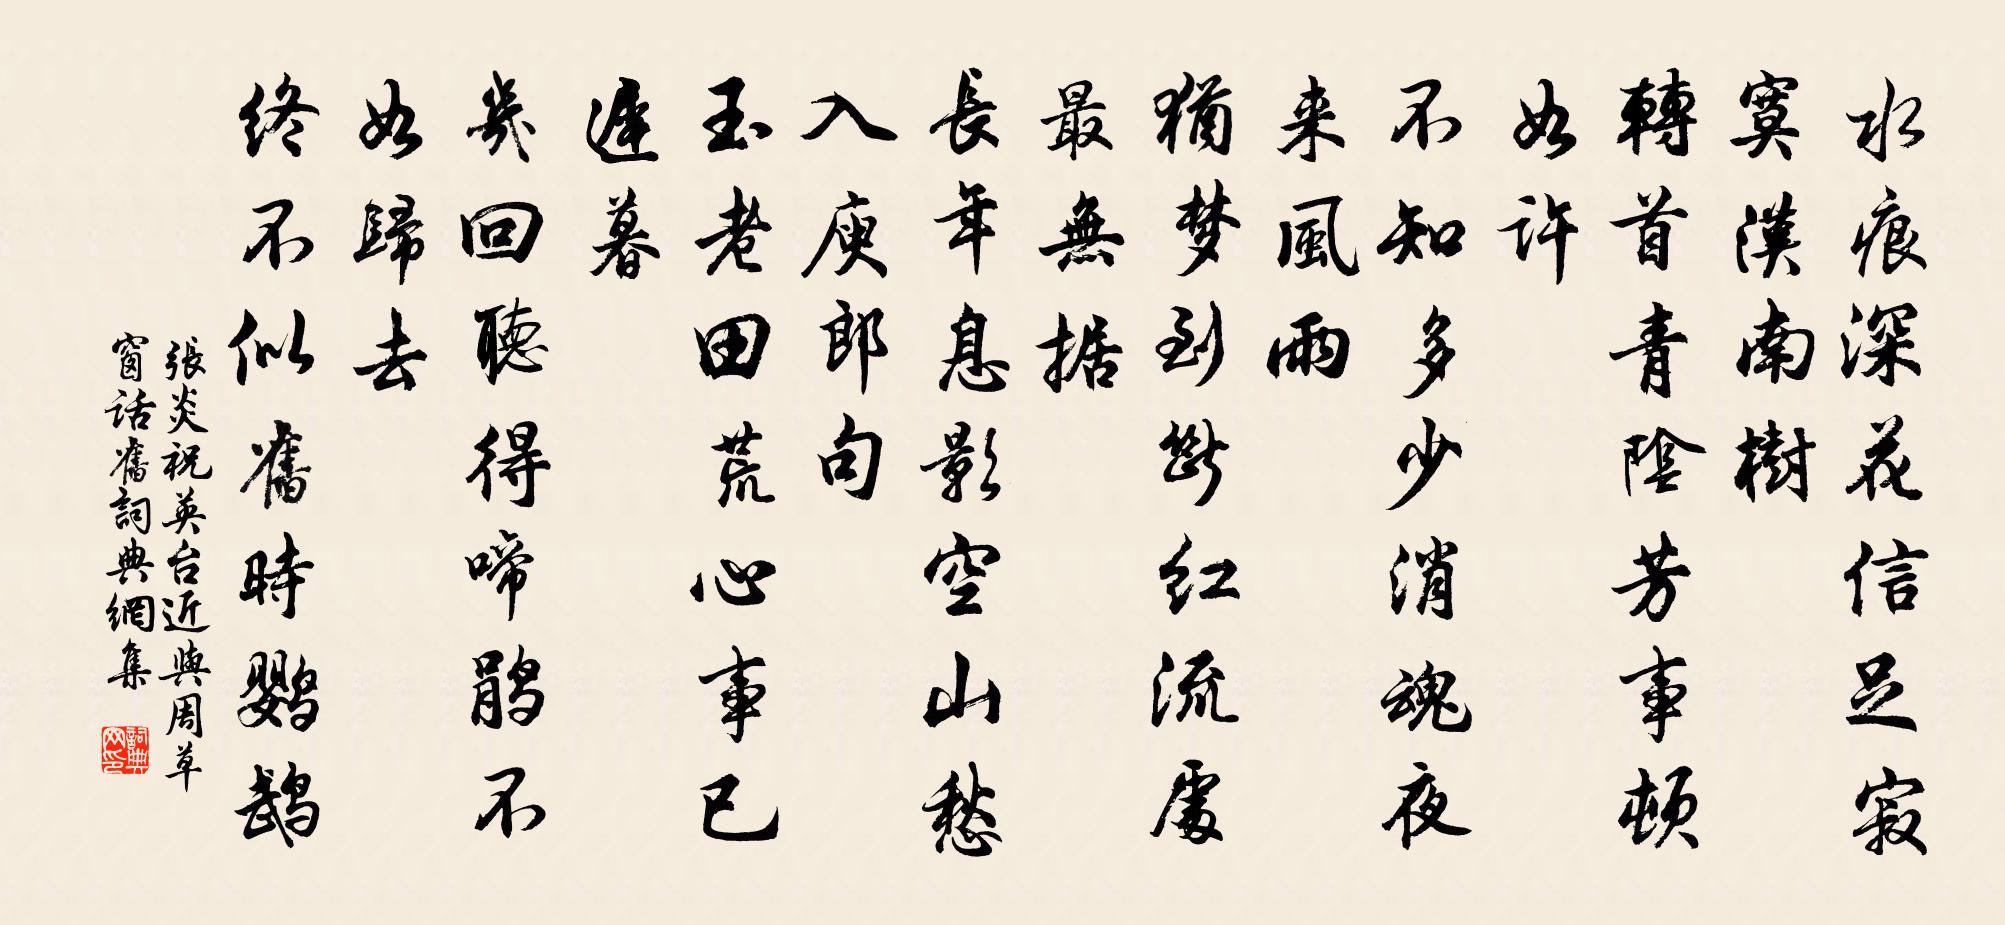 水痕深花信足寂
寞漢南樹
轉首青陰芳事頓
如許
不知多少消魂夜
来風雨
猶梦到斷红流處
最無据
長年息影空山愁
入庾郎句
玉老田荒心事已
遲暮
幾回聽得啼鹃不
如歸去
终不似舊時鹦鹉
張炎祝英台近與周草
窗話舊詞典網集
詞典
网印